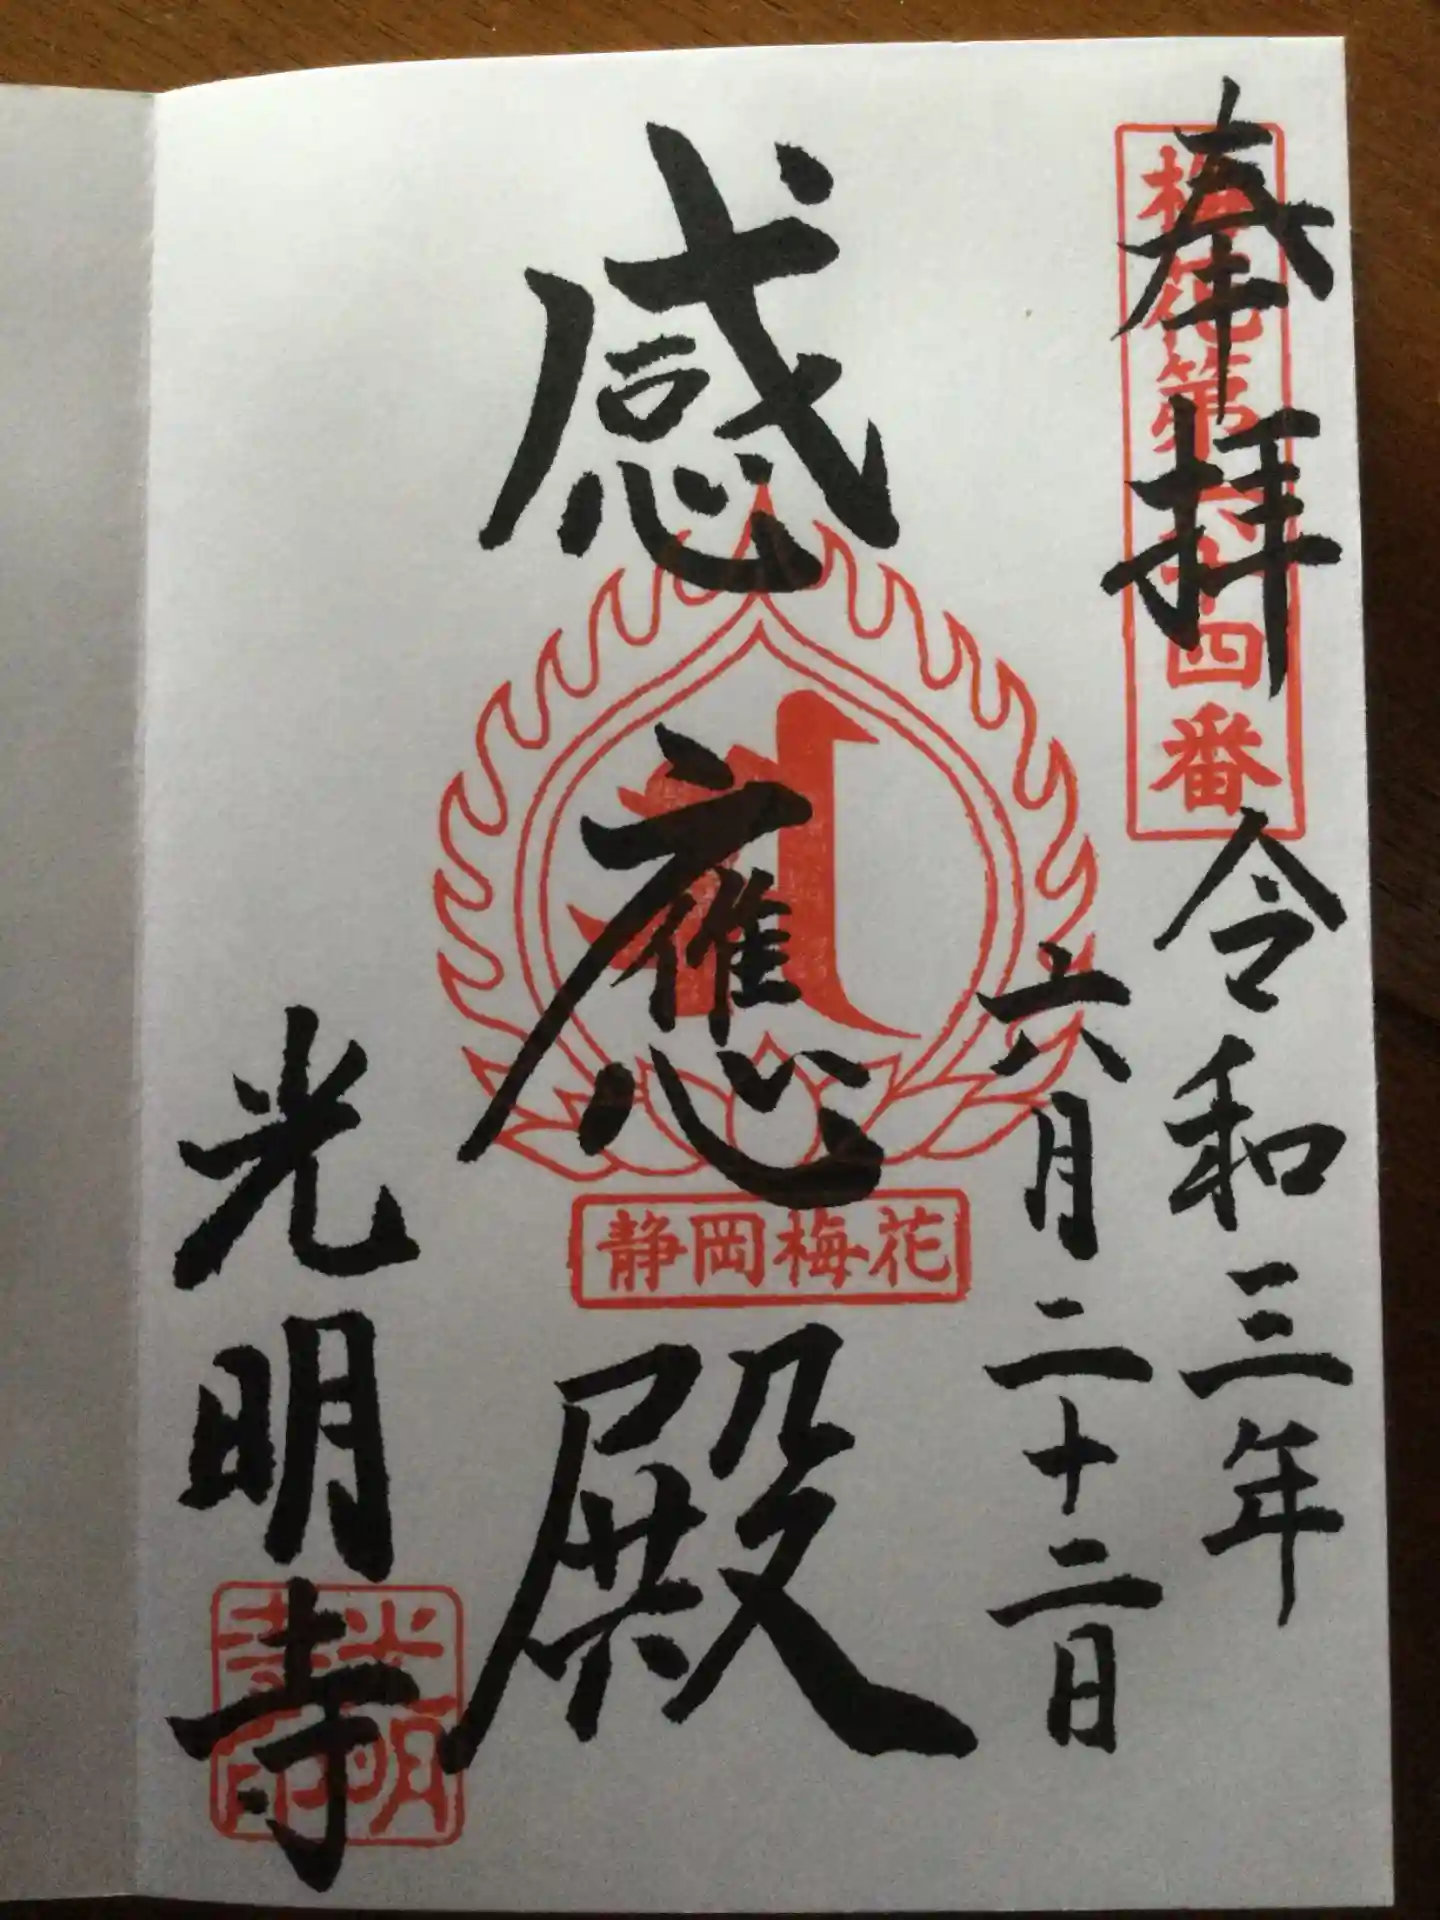 奉拝
梅花第六十四番
令和三年
六月二十二日
感應殿
静岡梅花
光明寺
光明寺印